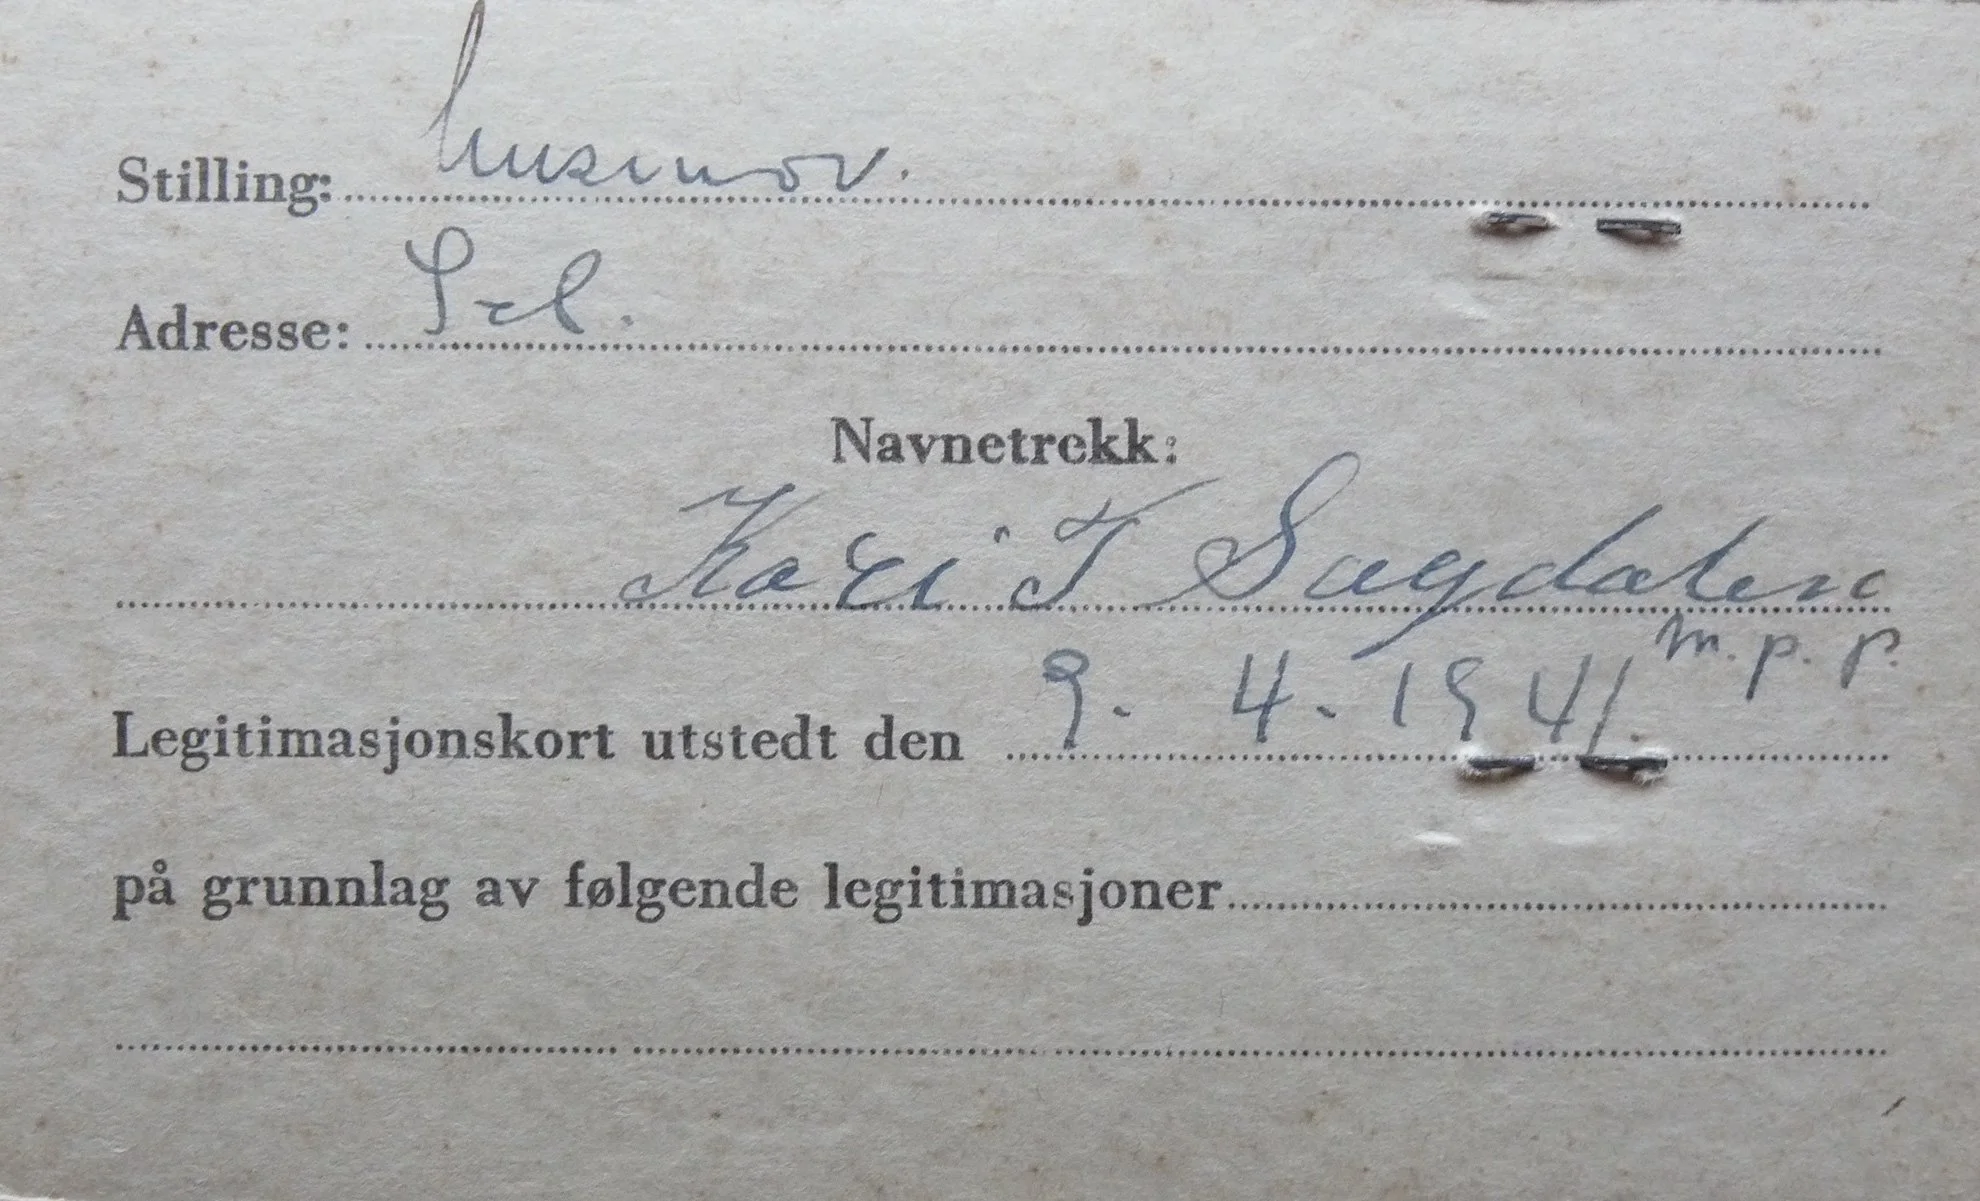 Stilling: husmor.
Adresse: Sel.
Navnetrekk:
Kari T Sagdalen
m. p. p.
Legitimasjonskort utstedt den 9. 4. 1941.
på grunnlag av følgende legitimasjoner